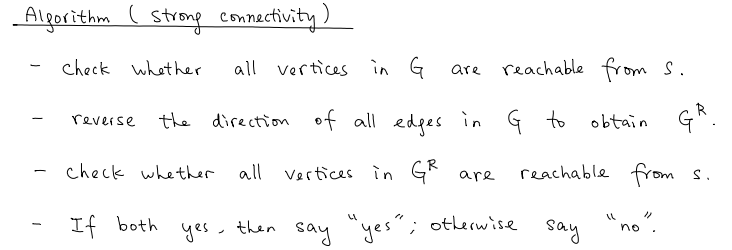 Algorithm (strong connectivity)
- check whether all vertices in G are reachable from s.
- reverse the direction of all edges in G to obtain Gᴿ.
- check whether all vertices in Gᴿ are reachable from s.
- If both yes, then say "yes"; otherwise say "no".